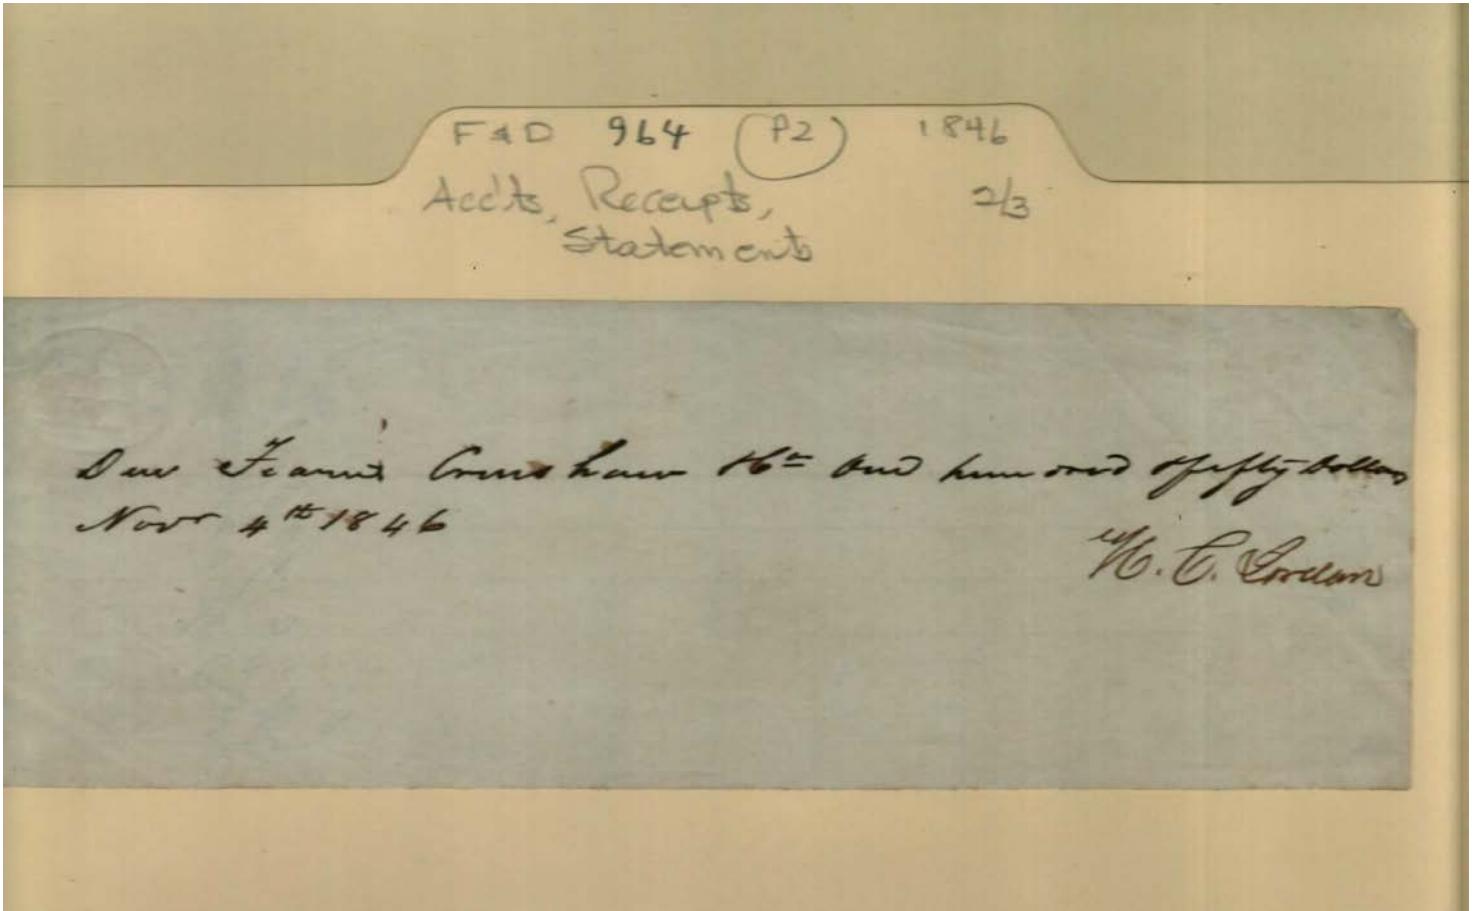 F & D 964 (P2) 1846
Acc'ts, Receipts, 2/3
Statements
Due Francis Crenshaw One hundred & fifty dollars
Novr 4th 1846
H. C. Gordan